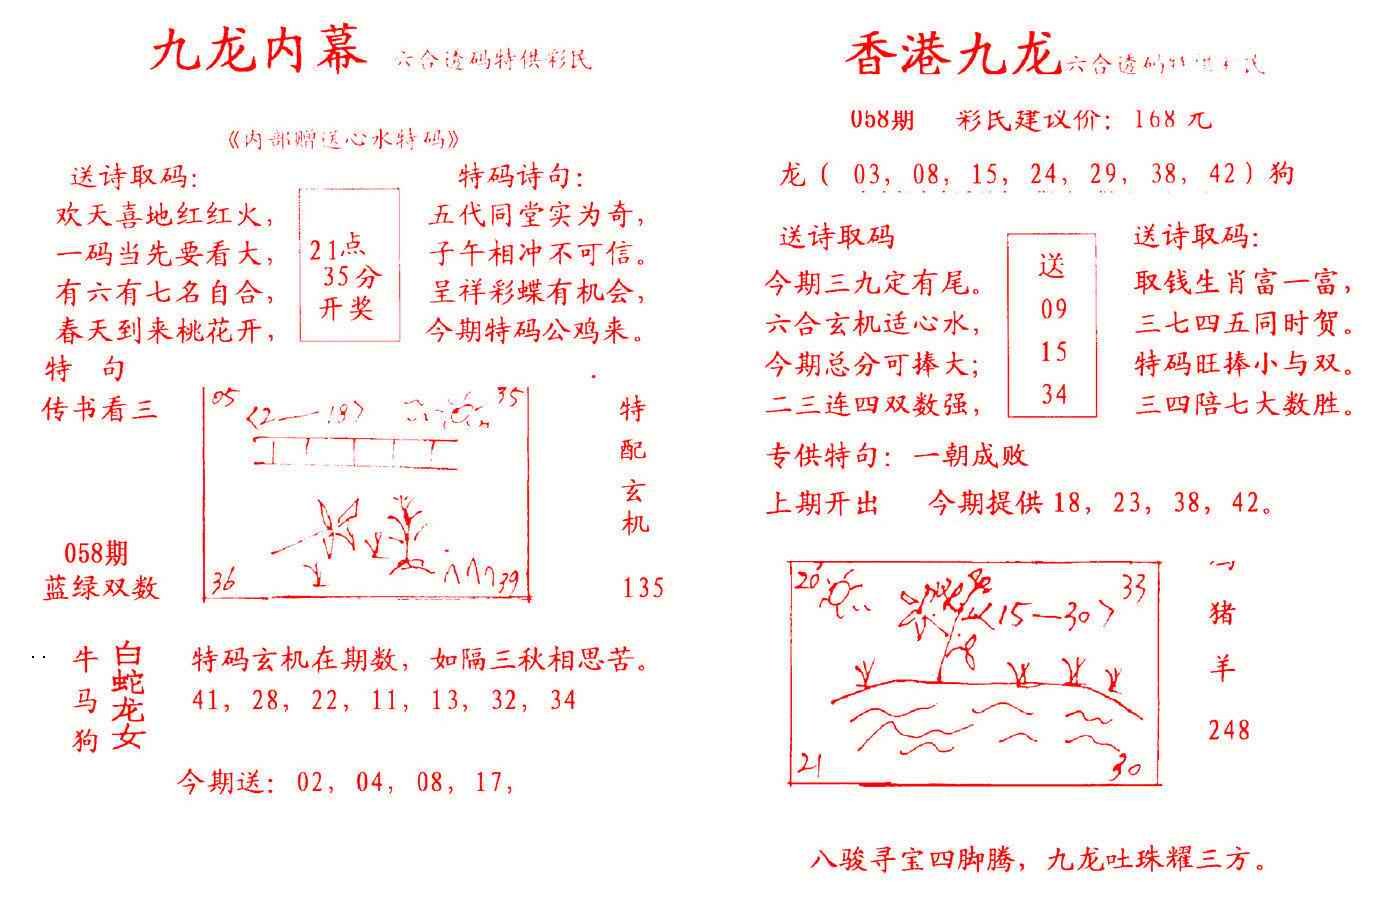 九龙内幕 六合透码特供彩民
《内部赠送心水特码》
送诗取码：
欢天喜地红红火，
一码当先要看大，
有六有七名自合，
春天到来桃花开，
21点
35分
开奖
特码诗句：
五代同堂实为奇，
子午相冲不可信。
呈祥彩蝶有机会，
今期特码公鸡来。
特 句
传书看三
058期
蓝绿双数
05 35
〈2—18〉
36 39
特
配
玄
机
135
牛
马
狗
白
蛇
龙
女
特码玄机在期数，如隔三秋相思苦。
41，28，22，11，13，32，34
今期送：02，04，08，17，
香港九龙 六合透码特供彩民
058期 彩民建议价：168元
龙（ 03，08，15，24，29，38，42）狗
送诗取码
今期三九定有尾。
六合玄机适心水，
今期总分可捧大；
二三连四双数强，
送
09
15
34
送诗取码：
取钱生肖富一富，
三七四五同时贺。
特码旺捧小与双。
三四陪七大数胜。
专供特句：一朝成败
上期开出 今期提供18，23，38，42。
20 33
〈15—30〉
21 30
猪
羊
248
八骏寻宝四脚腾，九龙吐珠耀三方。